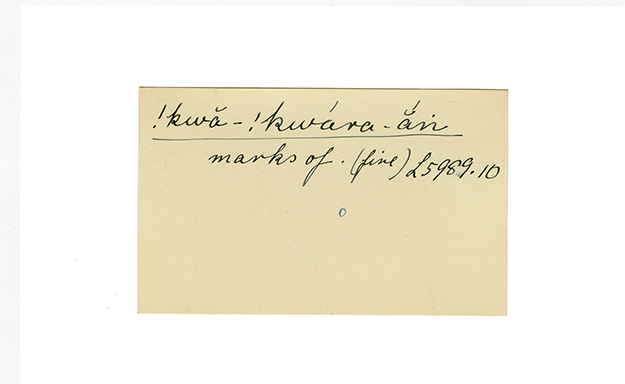 !kwă-!kwára-ắn
marks of. (fire) L5989.10